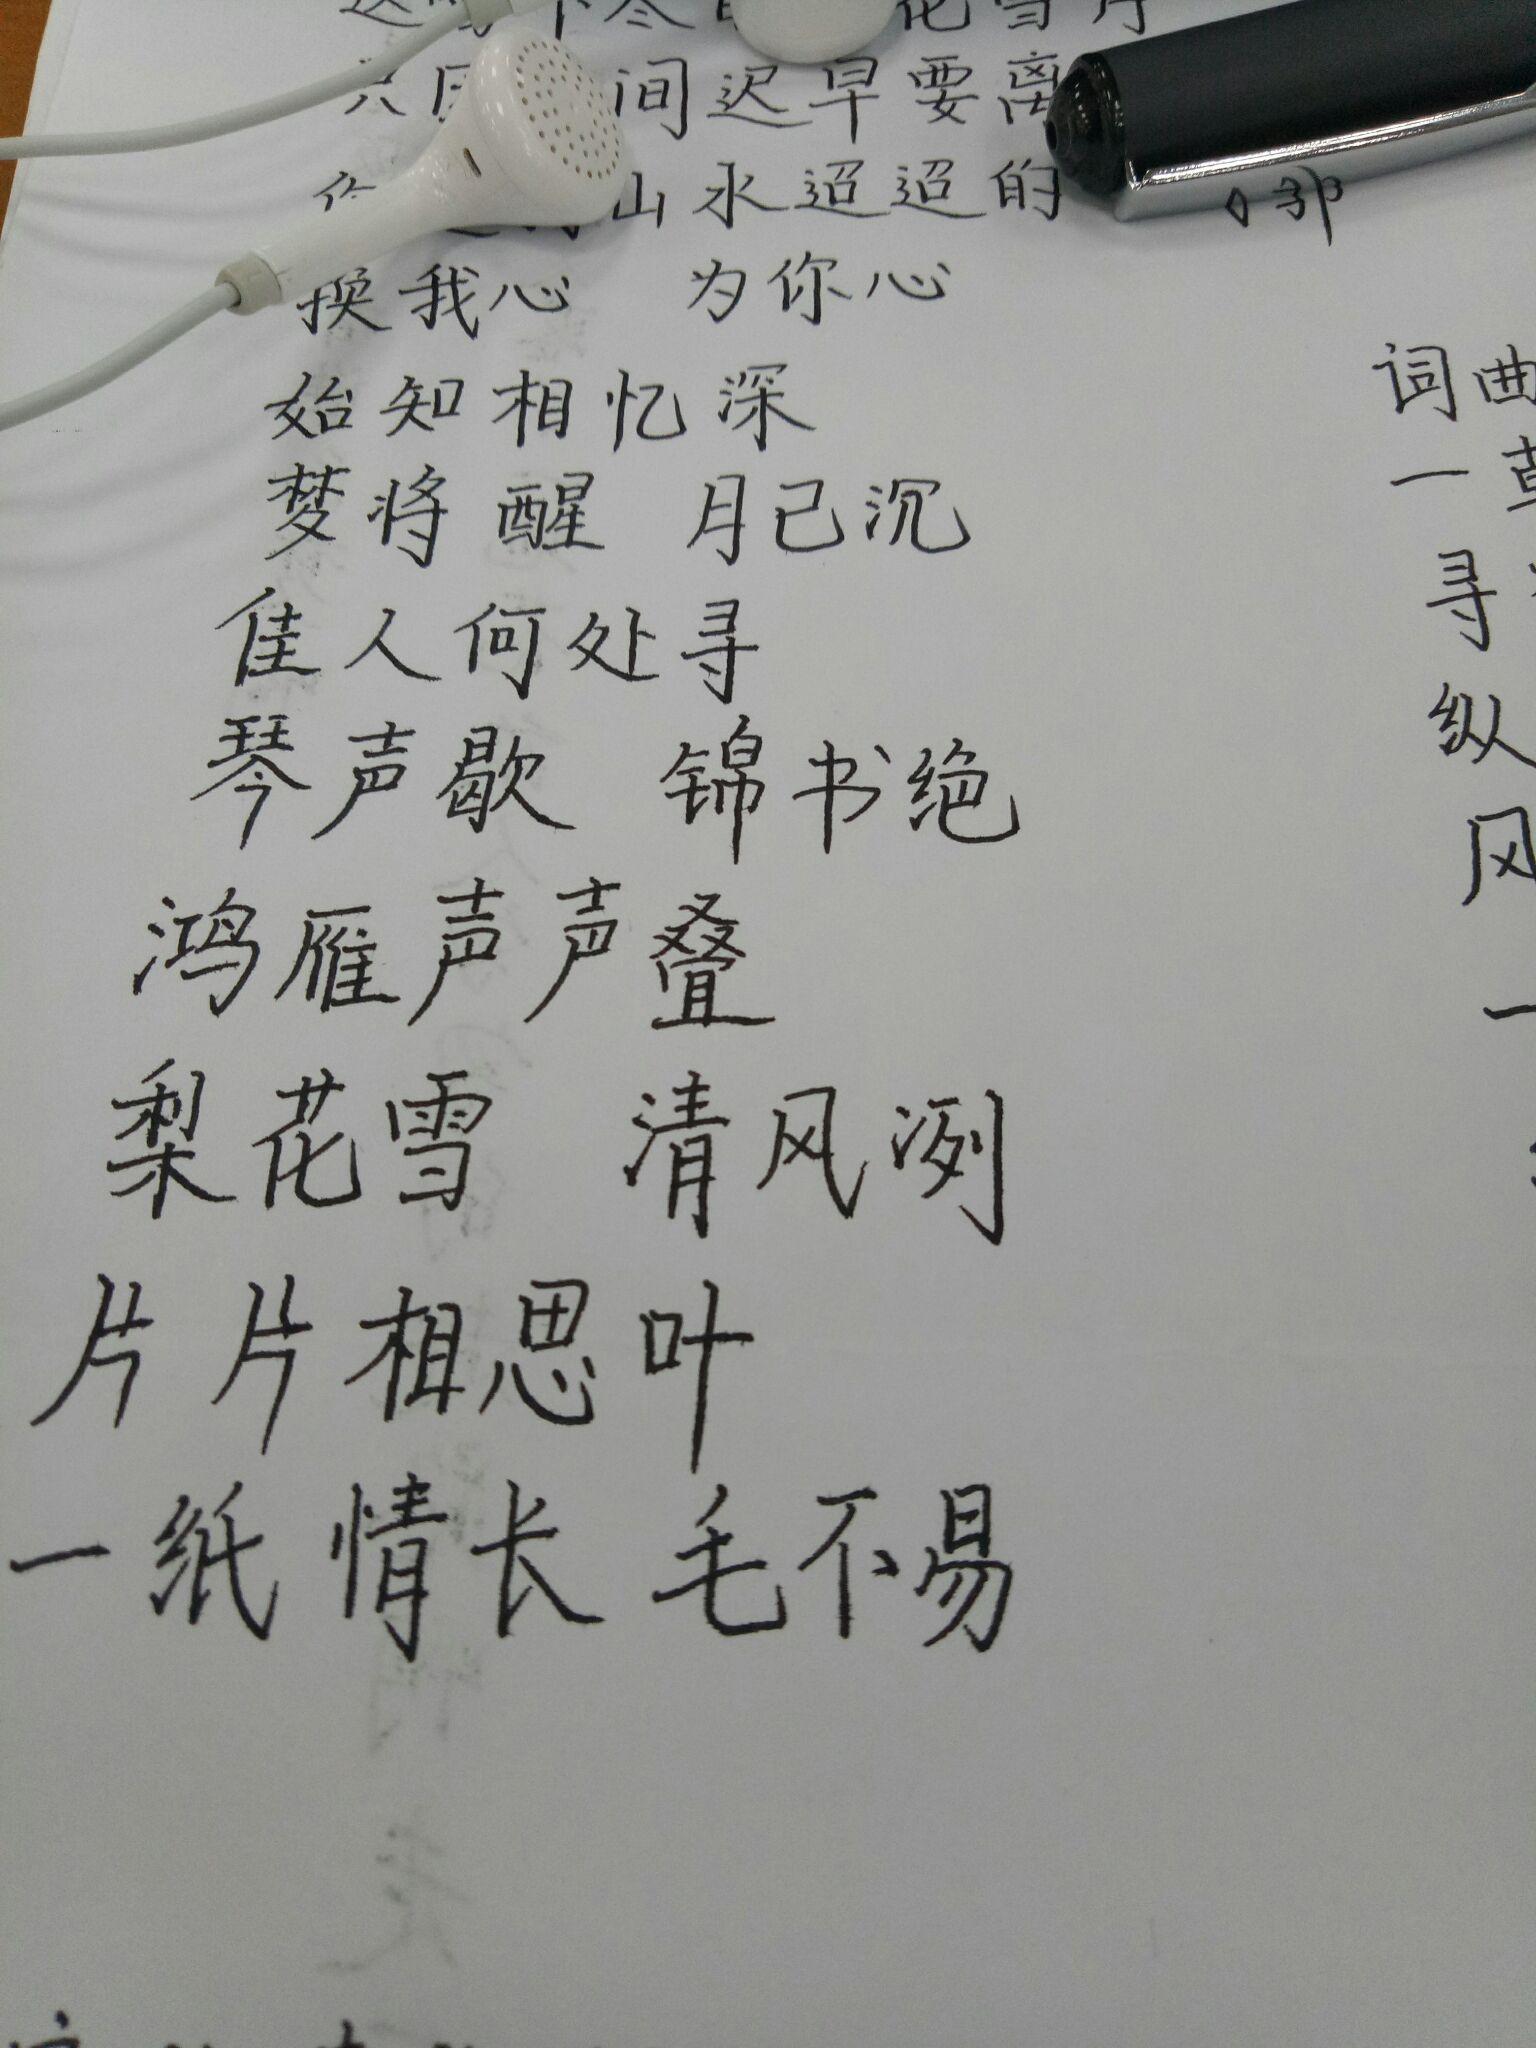 花雪月
间迟早要离
山水迢迢的
换我心 为你心
始知相忆深
梦将醒 月已沉
佳人何处寻
琴声歇 锦书绝
鸿雁声声叠
梨花雪 清风冽
片片相思叶
一纸情长 毛不易
词曲
一
寻
纵
风
一